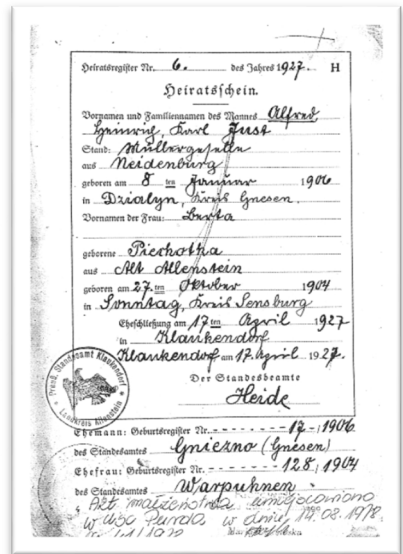 Heiratsregister Nr. 6. des Jahres 1927. H
Heiratsschein.
Vornamen und Familiennamen des Mannes Alfred,
Heinrich, Karl Just
Stand: Müllergeselle
aus Neidenburg
geboren am 8ten Januar 1906
in Dzialyn, Kreis Gnesen.
Vornamen der Frau: Berta
geborene Piechotka
aus Alt Allenstein
geboren am 27.ten Oktober 1904
in Sonntag, Kreis Sensburg
Eheschließung am 17ten April 1927
in Klaukendorf
Klaukendorf am 17. April 1927.
Der Standesbeamte
Heide
Preuß. Standesamt Klaukendorf
Landkreis Allenstein
Ehemann: Geburtsregister Nr. - - - - - - - - 17 - / 1906
des Standesamtes Gniezno (Gnesen)
Ehefrau: Geburtsregister Nr. - - - - - - - 128 / 1904
des Standesamtes Warpuhnen "
Akt małżeństwa umiejscowiono
w USC Purda w dniu 14.08.1978